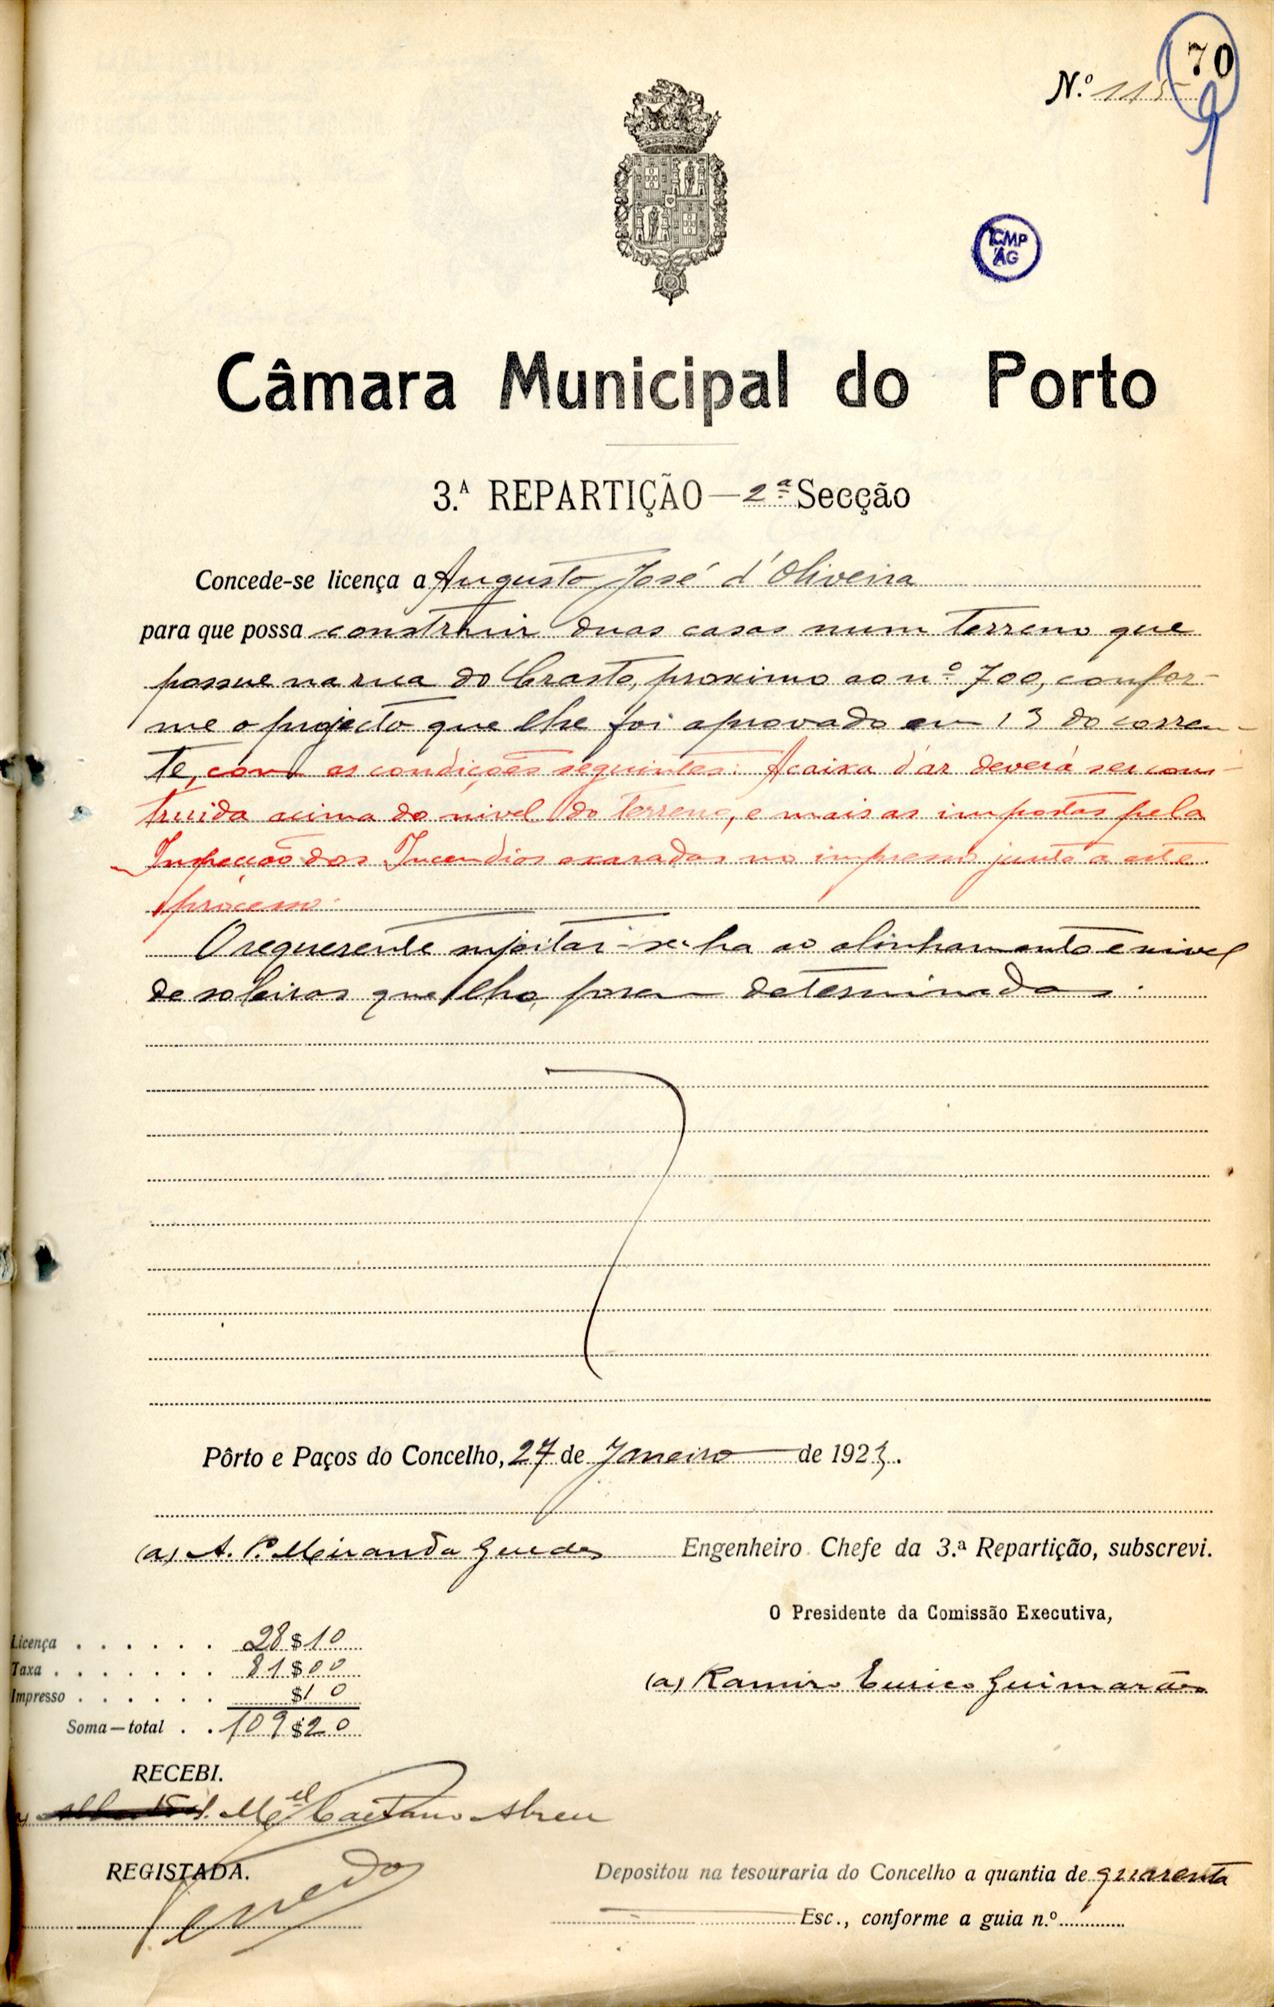 70
N.º 115
CMP
AG
Câmara Municipal do Porto
3.ª REPARTIÇÃO — 2ª Secção
Concede-se licença a Augusto José d'Oliveira
para que possa construir duas casas num terreno que
possue na rua do Crasto, proximo ao nº 700, confor-
me o projecto que lhe foi aprovado em 13 do corren-
te, com as condições seguintes: A caixa d'ar deverá ser cons-
truida acima do nivel do terreno, e mais as impostas pela
Inspecção dos Incendios exaradas no impresso junto a este
processo.
O requerente sujeitar-se-ha ao alinhamento e nivel
de soleiras que lhe forem determinados.
Pôrto e Paços do Concelho, 27 de Janeiro de 1923.
(a) A. P. Miranda Guedes Engenheiro Chefe da 3.ª Repartição, subscrevi.
O Presidente da Comissão Executiva,
(a) Ramiro Eurico Guimarães
Licença . . . . . . 28$10
Taxa . . . . . . . 81$00
Impresso . . . . . . $10
Soma—total . . 109$20
RECEBI.
Mel Caetano Abreu
REGISTADA.
Depositou na tesouraria do Concelho a quantia de quarenta
Esc., conforme a guia n.º